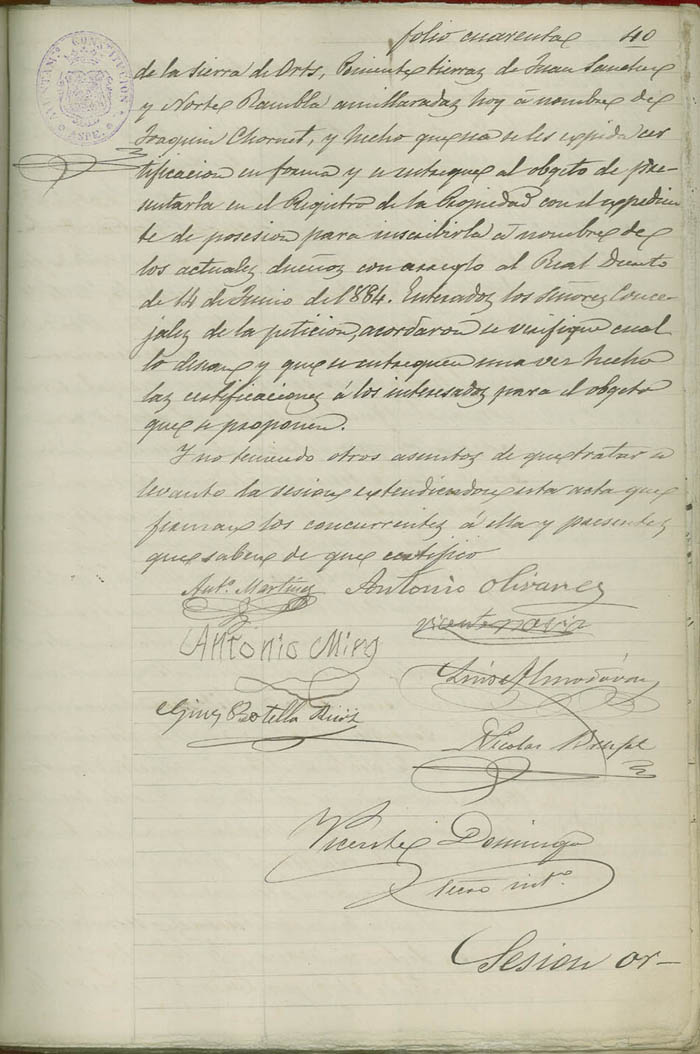 folio cuarenta 40
AYUNTAM.TO CONSTITUCION
ASPE
de la sierra de Orts, Poniente tierras de Juan Sanchez
y Norte Rambla amillaradas hoy á nombre de
Joaquin Chornet, y hecho que sea se les expida cer
tificacion en forma y se entregue al obgeto de pre-
sentarla en el Registro de la Propiedad con el expedien
te de posesion para inscribirla á nombre de
los actuales dueños con arreglo al Real Decreto
de 14 de Junio del 884. Enterados los señores Conce-
jales de la peticion, acordaron se verifique cual
lo desean y que se entreguen una vez hecho
las certificaciones á los interesados para el obgeto
que se proponen.
Y no teniendo otros asuntos de que tratar se
levanto la sesion extendiendose esta acta que
firman los concurrentes á ella y presentes
que saben de que certifico
Ant.º Martinez Antonio Olivares
Vicente
Antonio Mira
Luis Almodóvar
Gines Botella
Nicolas
Vicente Domingo
Secro int.º
Sesion or-